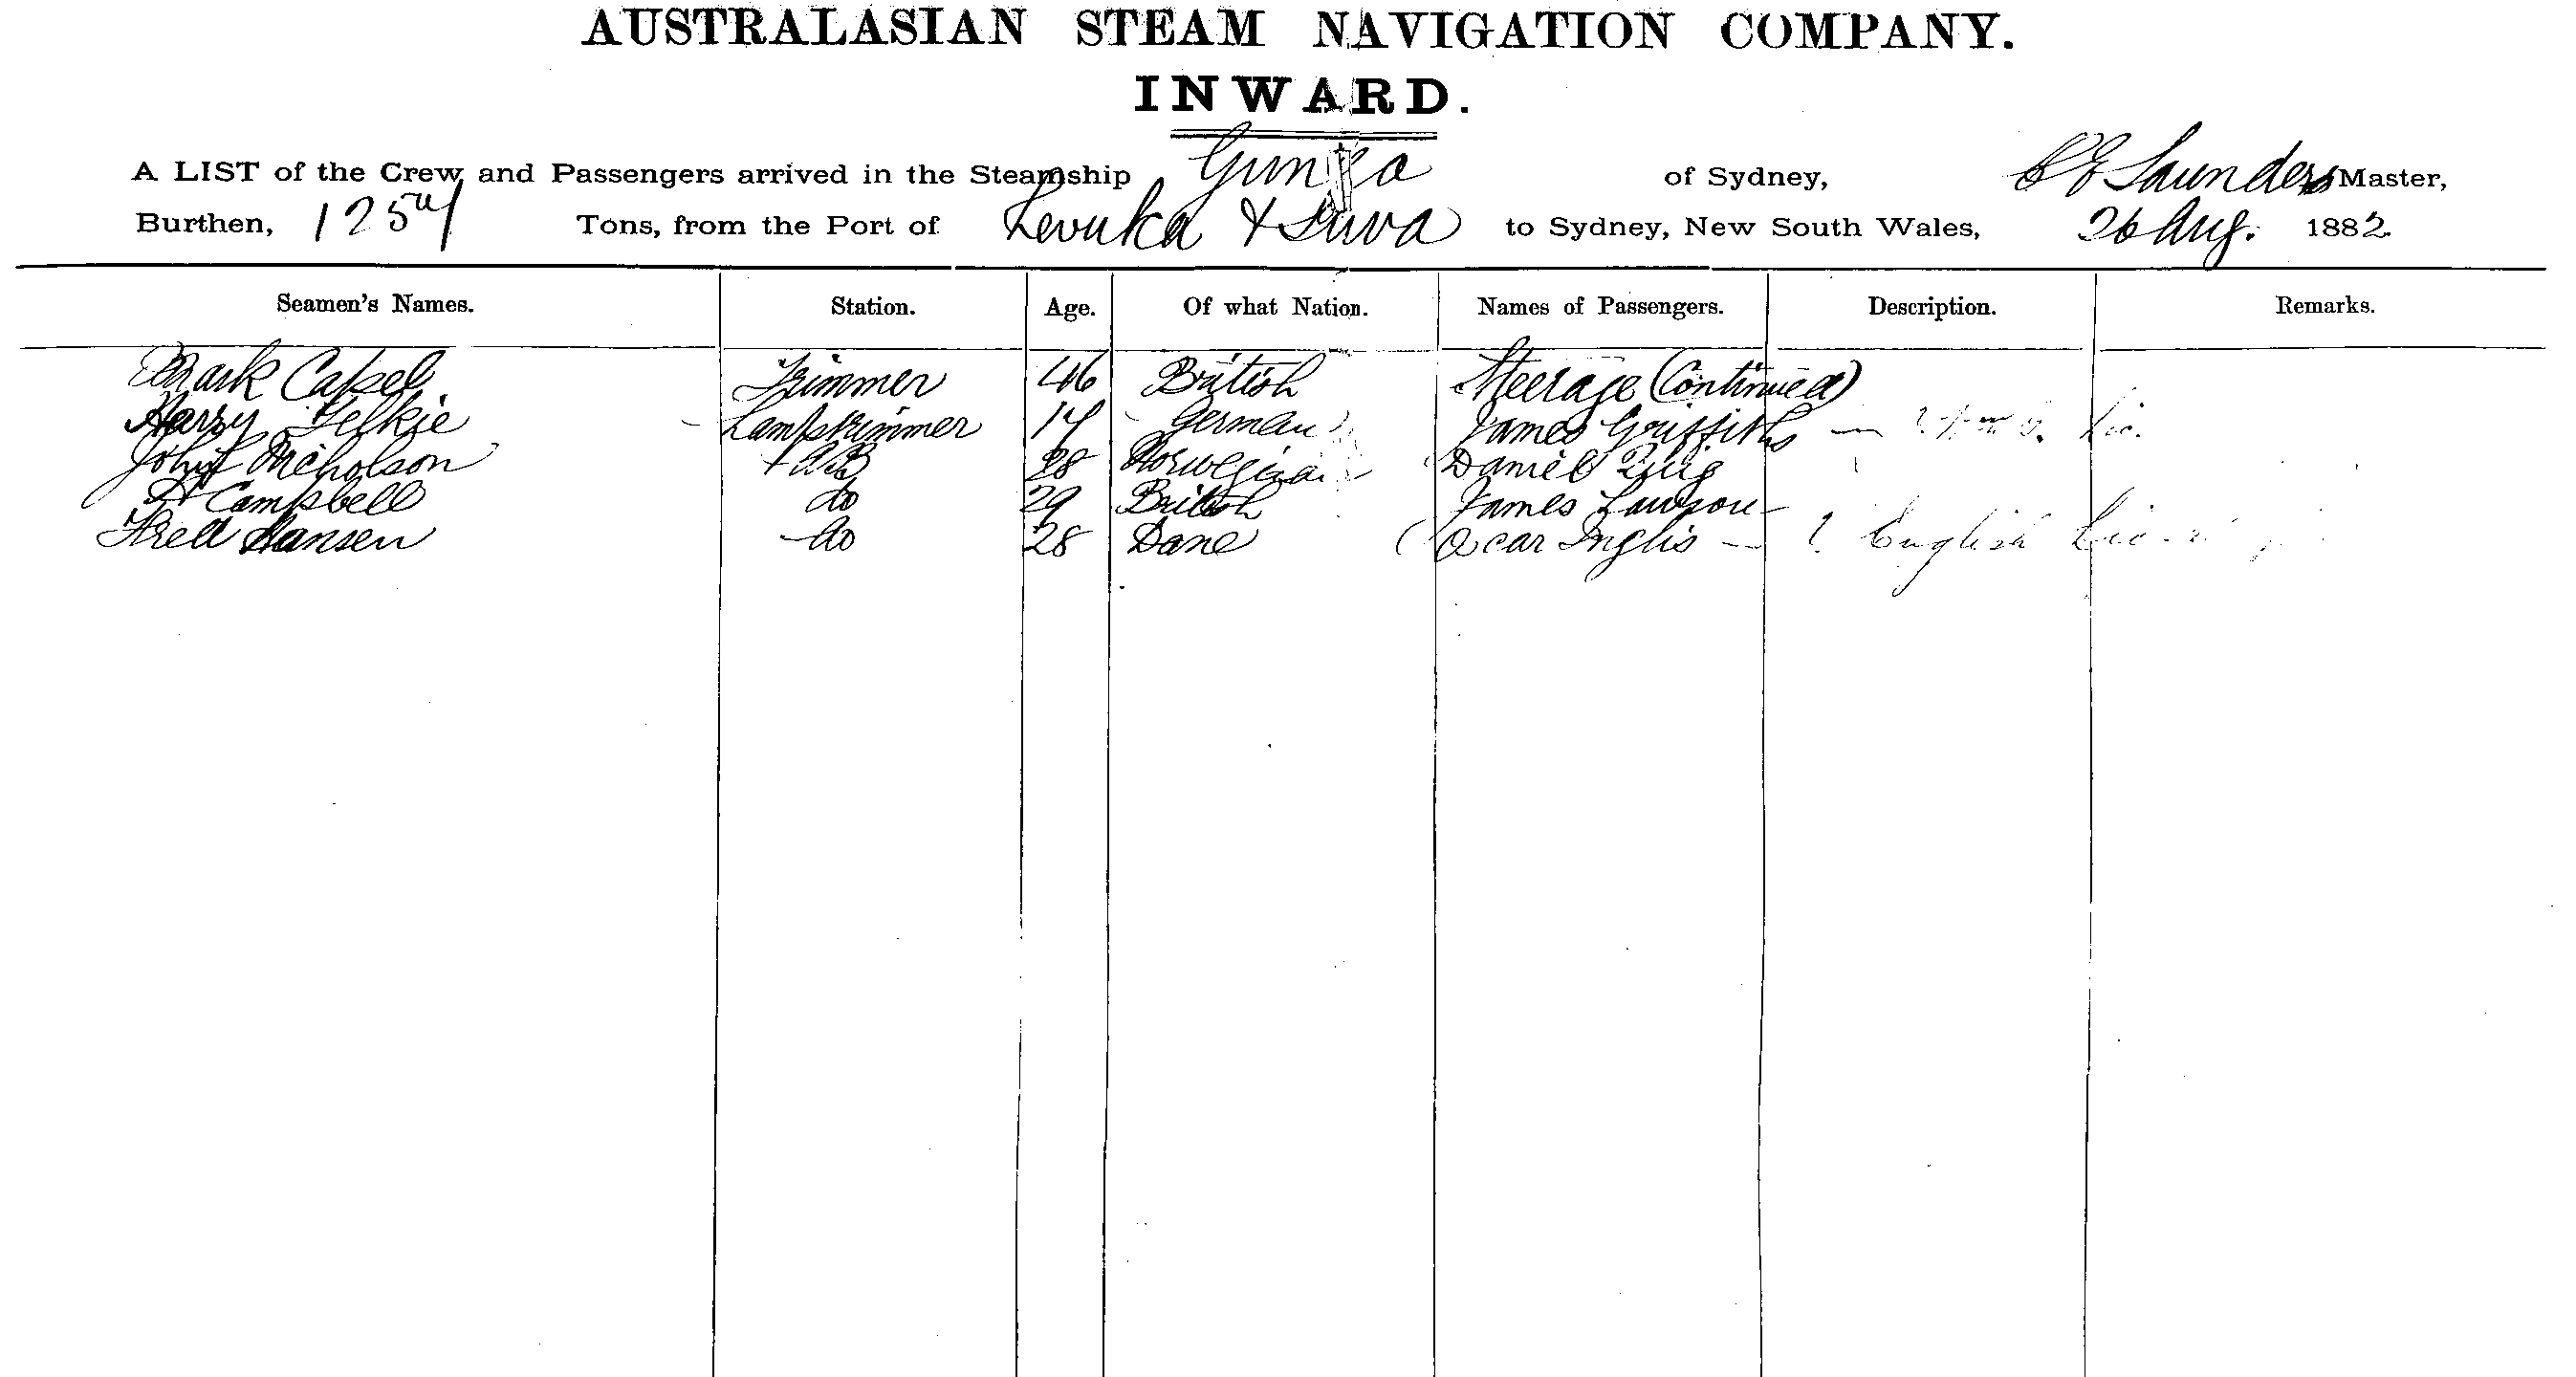 AUSTRALASIAN STEAM NAVIGATION COMPANY.
INWARD.
A LIST of the Crew and Passengers arrived in the Steamship Gunga of Sydney, Saunders Master,
Burthen, 1254 Tons, from the Port of Levuka & Suva to Sydney, New South Wales, 26 Aug. 1882.
Seamen's Names. Station. Age. Of what Nation. Names of Passengers. Description. Remarks.
Mark Capel Trimmer 46 British Steerage (Continued)
Harry Lampstrimmer 17 German James Griffiths
John Nicholson AB 28 Norwegian Daniel
Campbell do 29 British James Lawson
Hansen do 28 Dane Oscar Inglis English